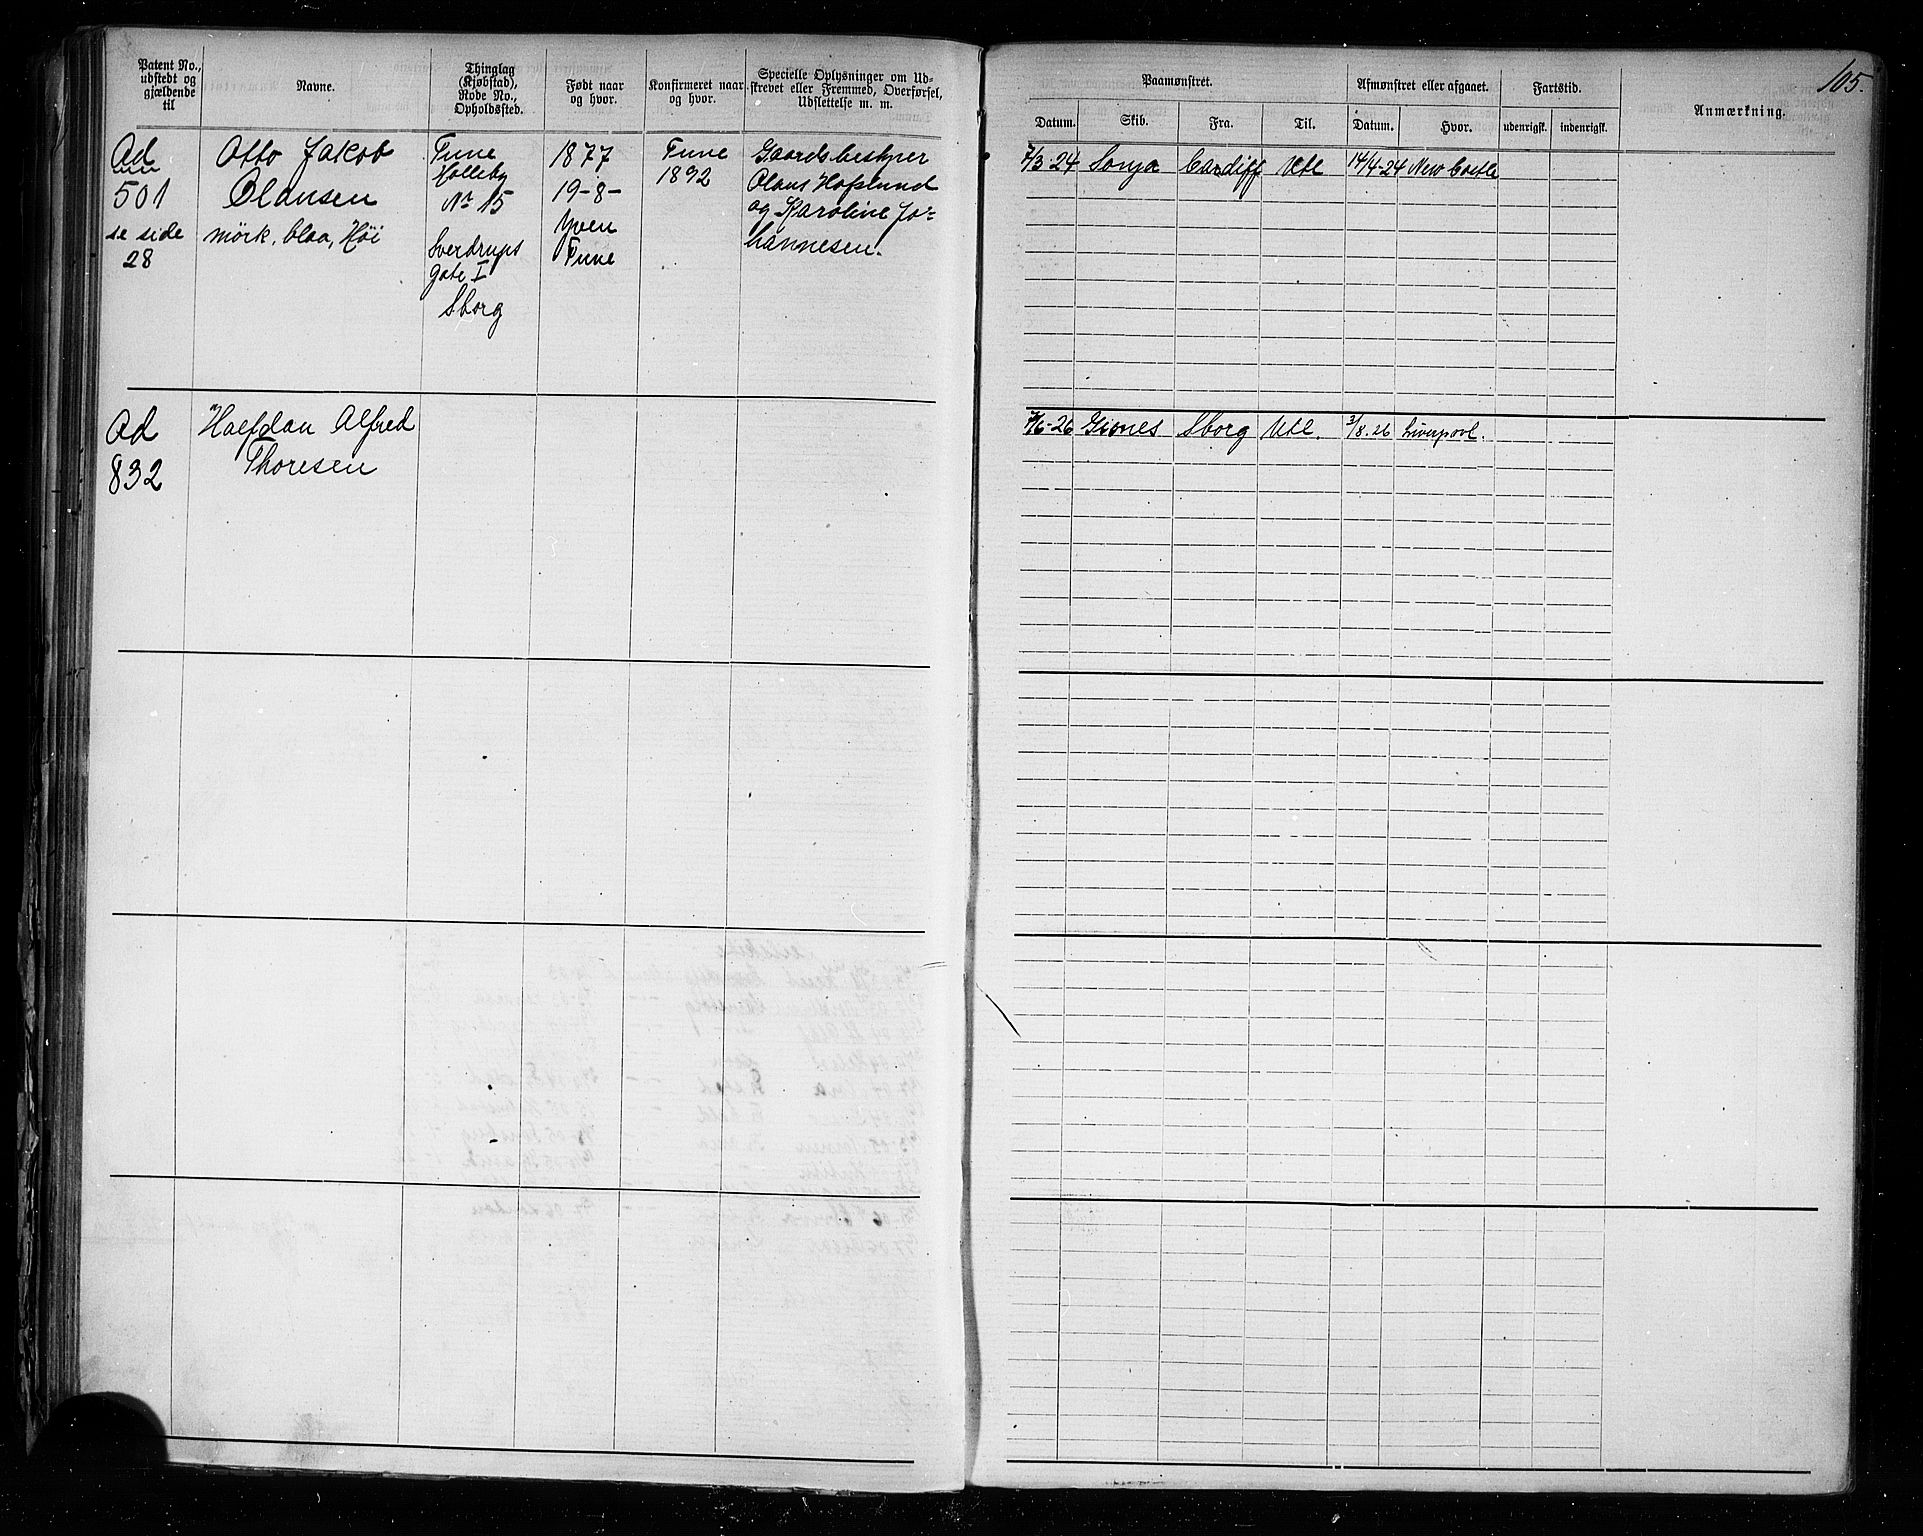 105.
Patent No., udstedt og gjældende til
Navne.
Thinglag (Kjøbstad), Rode No., Opholdssted.
Født naar og hvor.
Konfirmeret naar og hvor.
Specielle Oplysninger om Udstrevet eller Fremmed, Overførsel, Udslettelse m. m.
Paamønstret.
Afmønstret eller afgaaet.
Fartstid.
Anmærkning.
Datum.
Skib.
Fra.
Til.
Datum.
Hvor.
udenrigsk.
indenrigsk.
Ad
501
se side
28
Otto Jakob
Olausen
mörk, blaa, Höi
Tune
No 15
Sverdrups
gate I
Sborg
1877
19-8-
Yven
Tune
Tune
1892
Gaardsbestyrer
Olaus Hafslund
og Karoline Jo-
hannesen.
7/3-24 Sonja Cardiff Utl 14/4-24 New Castle
Ad
832
Halfdan Alfred
Thoresen
Sborg Utl. 3/8.26 Liverpool.